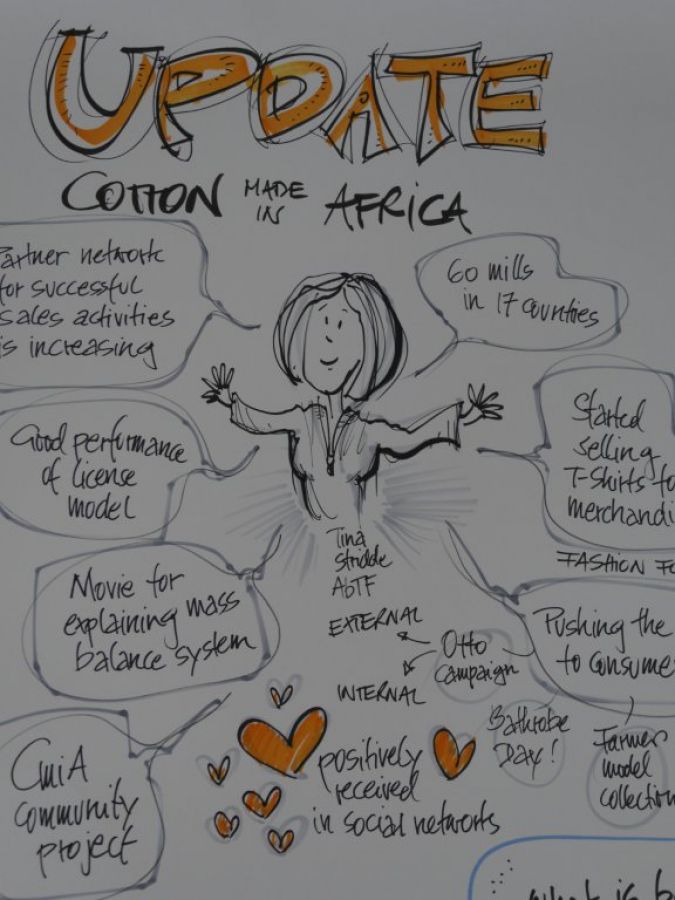 UPDATE
COTTON MADE IN AFRICA
Partner network
for successful
sales activities
is increasing
60 mills
in 17 counties
Good performance
of license
model
Started
selling
T-Shirts fo
merchandi
FASHION F
Movie for
explaining mass
balance system
Tina
Stridde
AbTF
EXTERNAL
INTERNAL
Otto
campaign
Pushing the
to consume
Bathrobe
Day!
Farmer
model
collection
CmiA
community
project
positively
received
in social networks
what is b